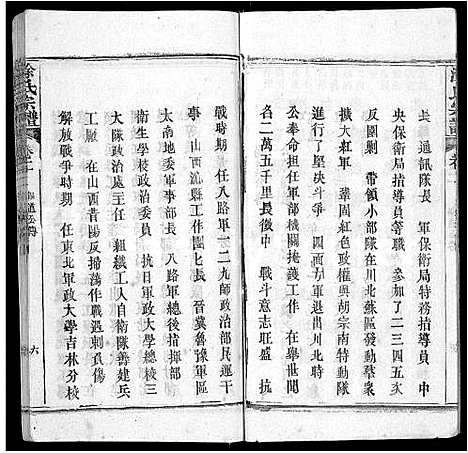 長　通訊隊長　軍保衛局特務指導員　中
央保衛局指導員等職　參加了二三四五次
反圍剿　帶領小部隊在川北蘇區發動羣衆
擴大紅軍　鞏固紅色政權與胡宗南特動隊
進行了堅决斗爭　四西方軍退出川北時
公奉命担任軍部機關掩護工作　在舉世聞
名二萬五千里長後中　戰斗意志旺盛　抗
徐氏宗譜
卷之一
六
戰時期　任八路軍一二九師政治部民運干
事　山西沁縣工作團七長　晉冀魯豫軍區
太南地委軍事部長　八路軍總後指揮部
衛生學校政治委員　抗日軍政大學總校三
大隊政治處主任　組織工人自衛隊籌建兵
工廠　在山西昔陽反掃蕩作戰遇刺負傷
解放戰爭時期　任東北軍政大學吉林分校